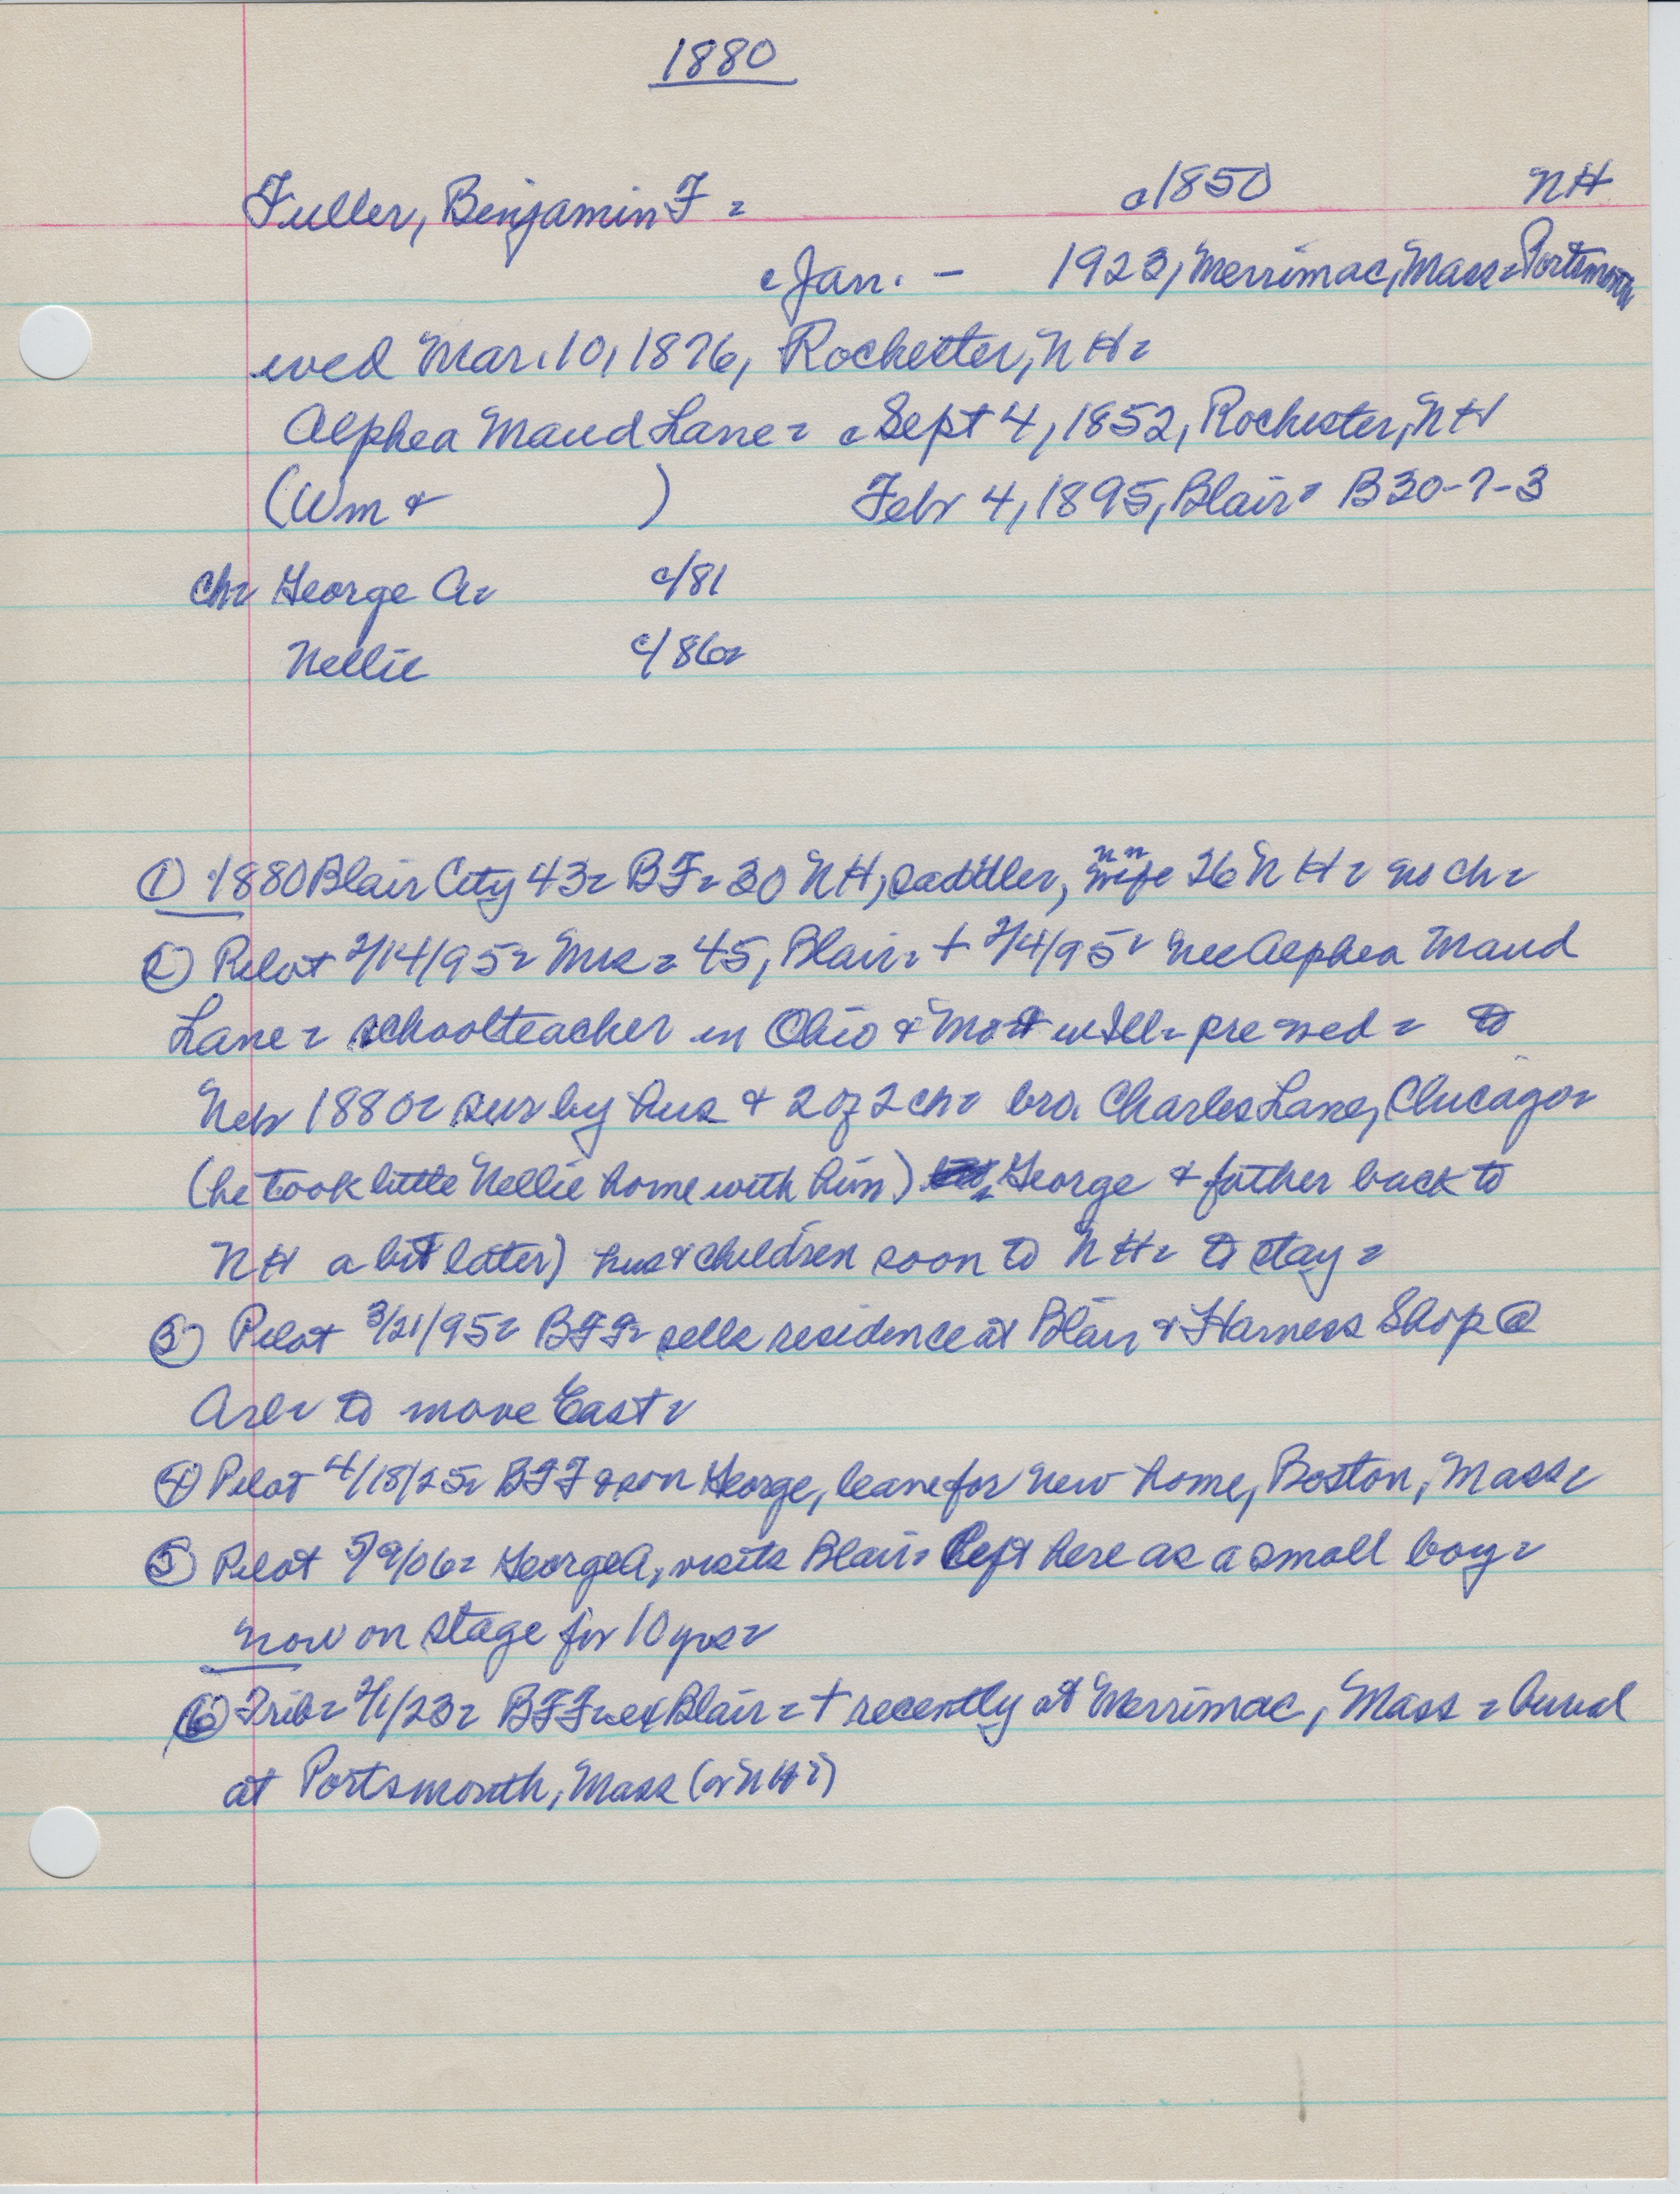 1880
Fuller, Benjamin F = c1850 NH
c Jan. – 1923, Merrimac, Mass = Portsmouth
wed Mar. 10, 1876, Rochester, NH =
Alphea Maud Lane = c Sept 4, 1852, Rochester, NH
(Wm & ) Febr 4, 1895, Blair = B30-7-3
ch = George A = c/81
Nellie c/86 =
① 1880 Blair City 43 = BF = 30 NH, saddler, nn wife 26 NH = no ch =
② Pilot 2/14/95 = Mrs = 45, Blair = + 2/4/95 = nee Alphea Maud
Lane = schoolteacher in Ohio & pre wed = to
Nebr 1880 = sur by hus & 2 of 2 ch = bro. Charles Lane, Chicago =
(he took little Nellie home with him) George & father back to
NH a bit later) hus & children soon to NH = to stay =
③ Pilot 3/21/95 = BFF = sells residence at Blair & Harness Shop @
Arl = to move East =
④ Pilot 4/18/25 = BFF & son George, leave for new home, Boston, Mass =
⑤ Pilot 5/9/06 = George A, visits Blair = left here as a small boy =
now on stage for 10 yrs =
⑥ Trib = 2/1/23 = BFF = ex Blair = + recently at Merrimac, Mass = burial
at Portsmouth, Mass (or NH?)